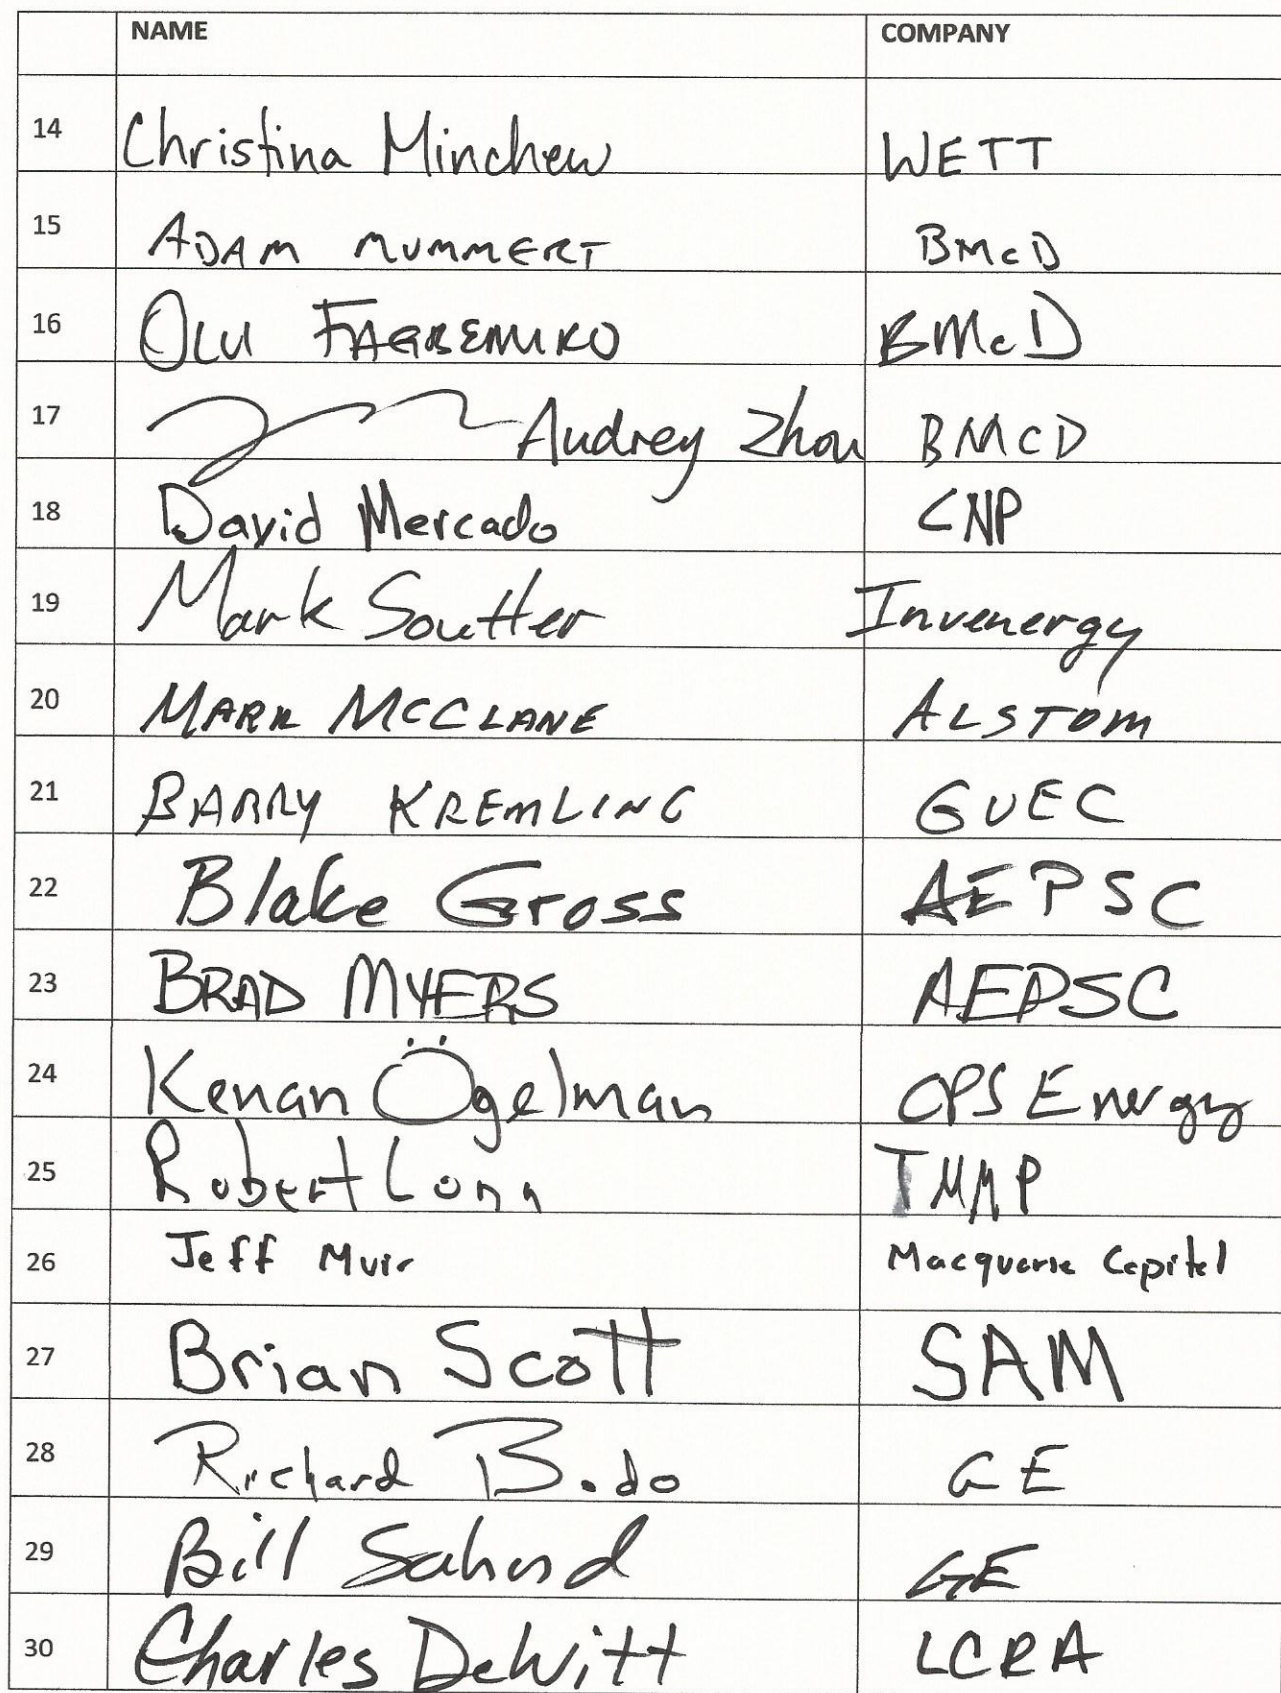 NAME COMPANY
14 Christina Minchew WETT
15 ADAM MUMMERT BMcD
16 OLU FAGBEMIRO BMcD
17 Audrey Zhou BMCD
18 David Mercado CNP
19 Mark Soutter Invenergy
20 MARK MCCLANE ALSTOM
21 BARRY KREMLING GVEC
22 Blake Gross AEPSC
23 BRAD MYERS AEPSC
24 Kenan Ögelman CPS Energy
25 Robert
26 Jeff Muir Macquarie Capital
27 Brian Scott SAM
28 Richard GE
29 Bill GE
30 Charles DeWitt LCRA